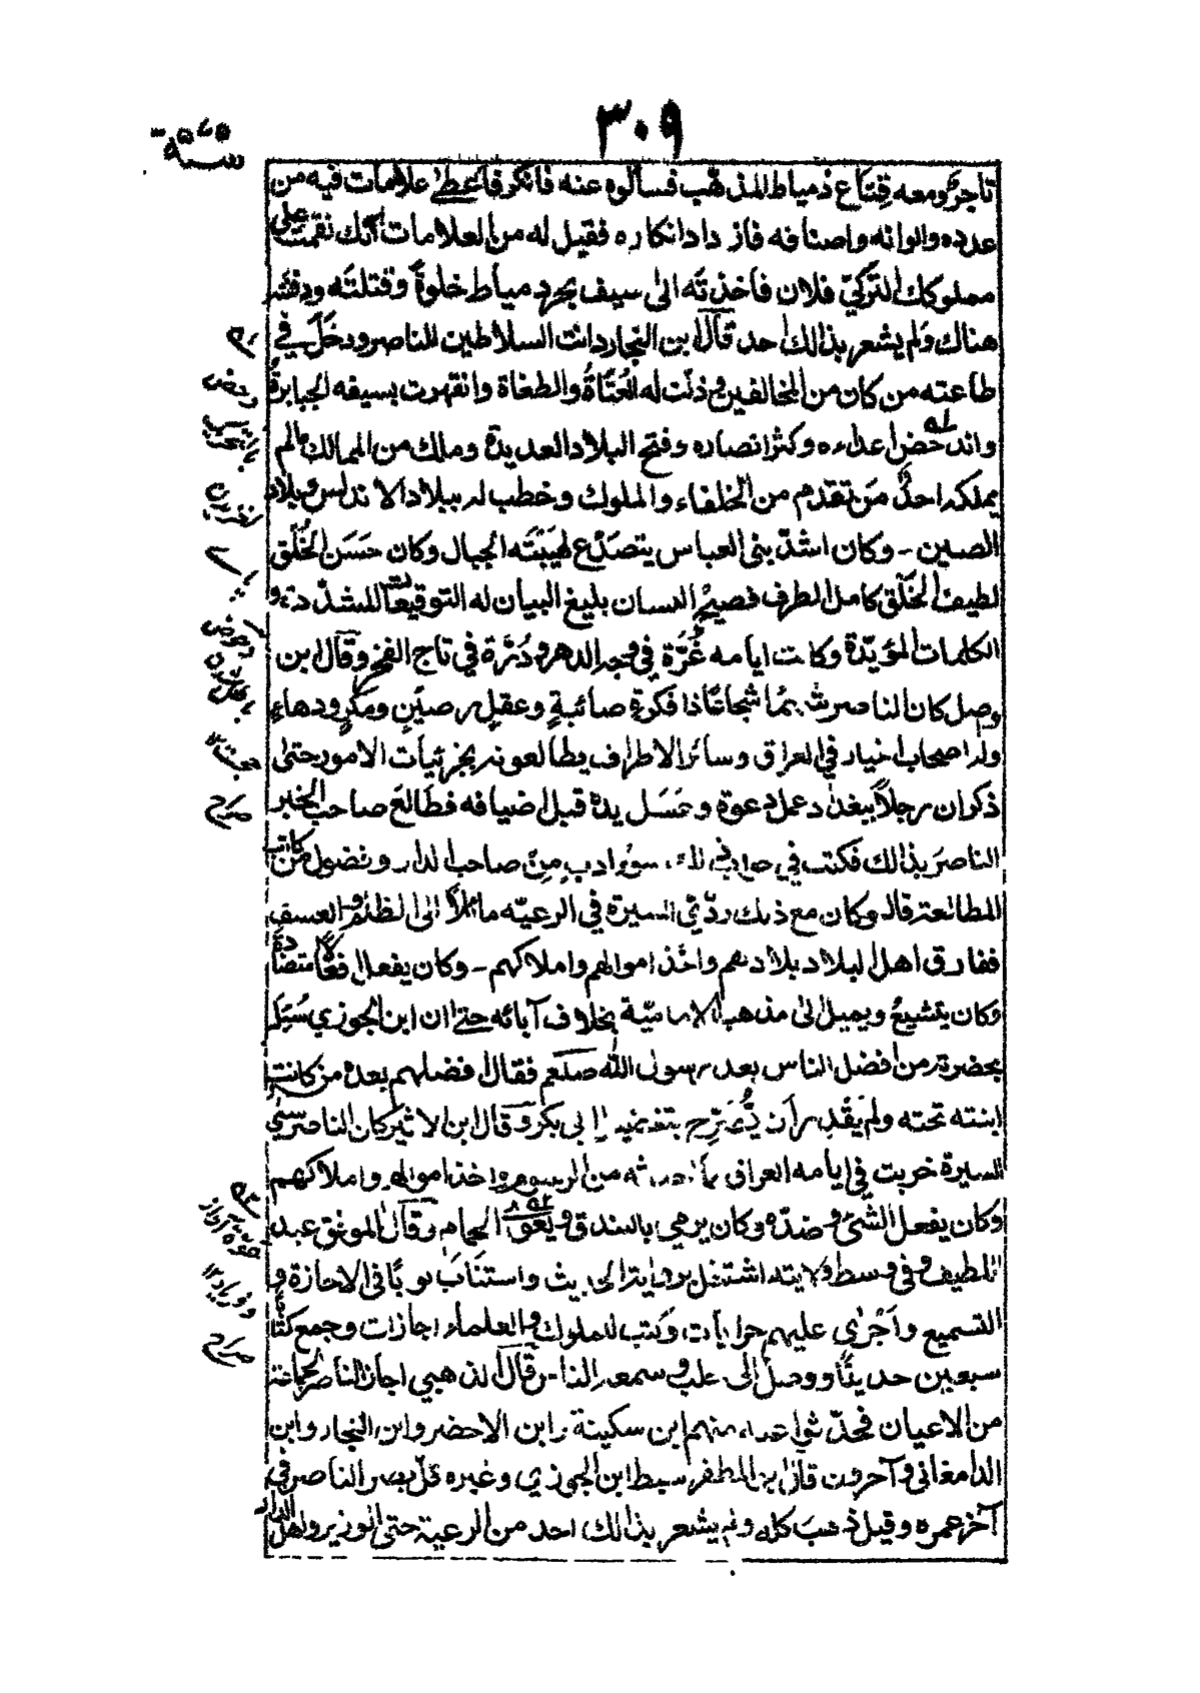 ٣٠٩
سنة ٥٧٥
تاجر ومعه متاع دمياط المذهب فسألوه عنه فانكر فاعطى علامات فيه من
عدده والوانه واصنافه فازداد انكاره فقيل له من العلامات انك نقمت على
مملوكك التركي فلان فاخذته الى سيف بحر دمياط خلوة وقتلته ودفنته
هناك ولم يشعر بذالك احد قال ابن النجار دانت السلاطين للناصر ودخل في
طاعته من كان من المخالفين وذلت له العتاة والطغاة وانقهرت بسيفه الجبابرة
واندحض اعداءه وكثر انصاره وفتح البلاد العديدة وملك من الممالك مالم
يملكه احد من تقدم من الخلفاء والملوك وخطب له ببلاد الاندلس وبلاد
الصين – وكان اشد بنى العباس يتصدع لهيبته الجبال وكان حسن الخلق
لطيف الخلق كامل الظرف فصيح اللسان بليغ البيان له التوقيعات المسددة و
الكلمات المؤيدة وكانت ايامه غرة في وجه الدهر ودرة في تاج الفخر وقال ابن
وصل كان الناصر شهما شجاعا ذا فكرة صائبة وعقل رصين ومكر ودهاء
وله اصحاب اخبار في العراق وسائر الاطراف يطالعونه بجزئيات الامور حتى
ذكر ان رجلا ببغداد عمل دعوة وغسل يده قبل اضيافه فطالع صاحب الخبر
الناصر بذالك فكتب في جواب ذلك سوء ادب من صاحب الدار وفضول من كاتب
المطالعة قال وكان مع ذلك ردئ السيرة في الرعية مائلا الى الظلم والعسف
ففارق اهل البلاد بلادهم واخذ اموالهم واملاكهم – وكان يفعل افعالا متضادة
وكان يتشيع ويميل الى مذهب الامامية بخلاف آبائه حتى ان ابن الجوزي سئل
بحضرته من افضل الناس بعد رسول الله صلعم فقال افضلهم بعده من كانت
ابنته تحته ولم يقدر أن يصرح بتفضيل ابي بكر وقال ابن الاثير كان الناصر سيئ
السيرة خربت في ايامه العراق مما احدثه من الرسوم واخذ اموالهم واملاكهم
وكان يفعل الشئ وضده وكان يرمي بالبندق ويغوى الحمام وقال الموفق عبد
اللطيف وفي وسط ولايته اشتغل برواية الحديث واستناب نوابا في الاجازة و
التسميع وأجرى عليهم جرايات وكتب للملوك والعلماء اجازات وجمع كتابا
سبعين حديثا ووصل الى حلب وسمعه الناس قال الذهبي اجاز الناصر لجماعة
من الاعيان فحدثوا عنه منهم ابن سكينة وابن الاخضر وابن النجار وابن
الدامغاني وآخرون قال ابو المظفر سبط ابن الجوزي وغيره قل بصر الناصر في
آخر عمره وقيل ذهب كله ولم يشعر بذالك احد من الرعية حتى الوزير واهل الدار